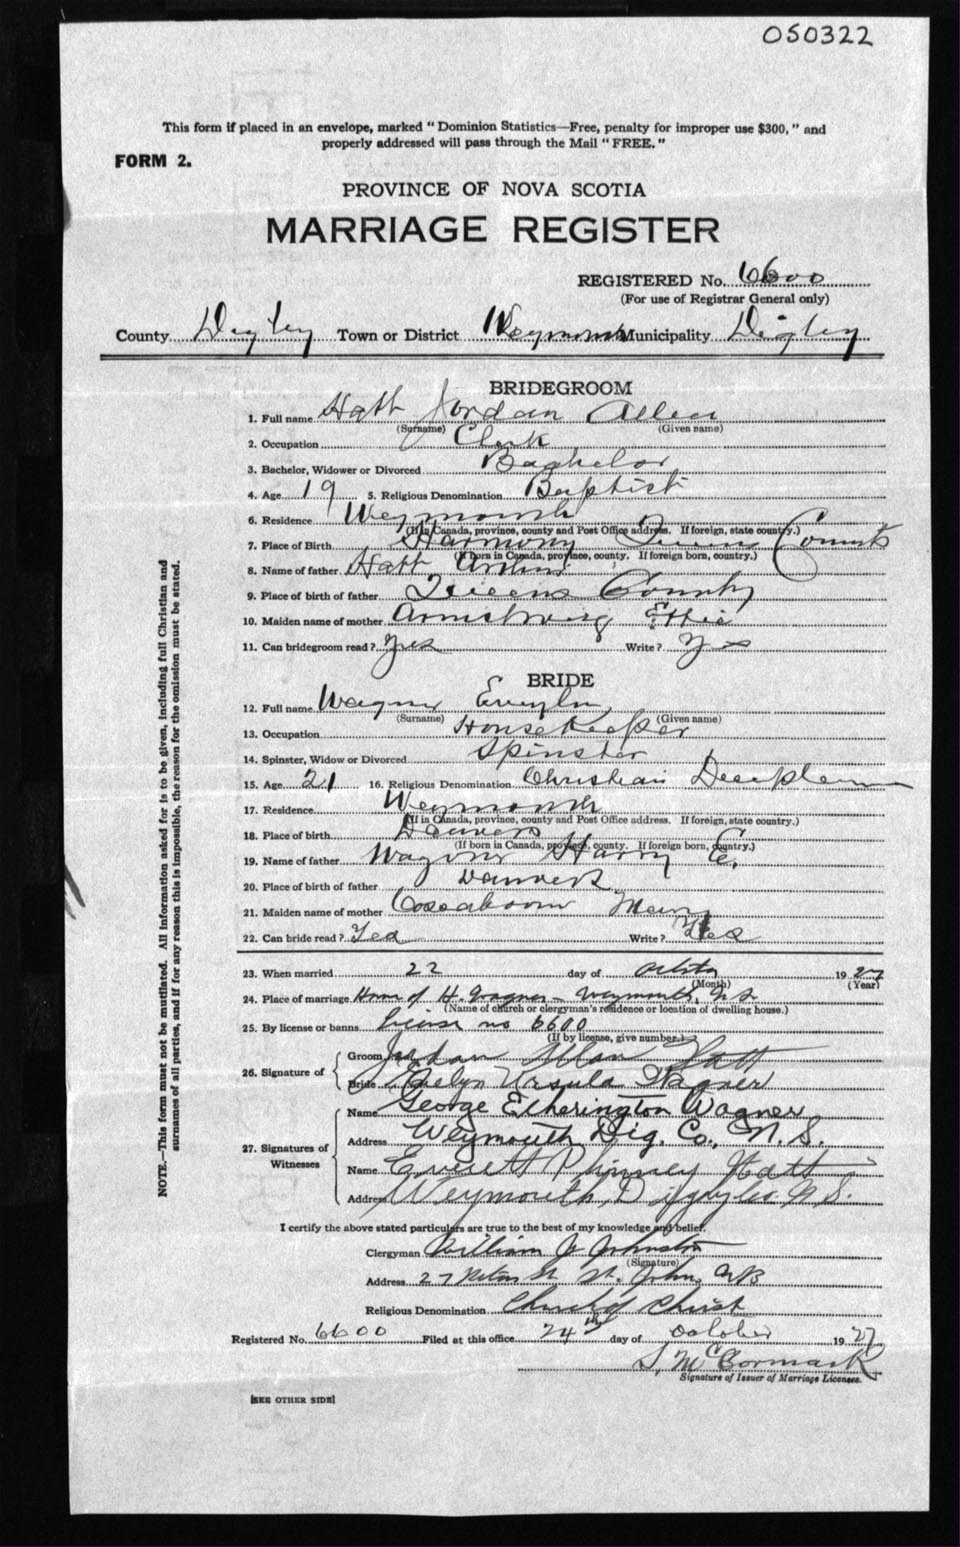 050322
This form if placed in an envelope, marked "Dominion Statistics—Free, penalty for improper use $300," and
properly addressed will pass through the Mail "FREE."
FORM 2.
PROVINCE OF NOVA SCOTIA
MARRIAGE REGISTER
REGISTERED No. 6600
(For use of Registrar General only)
County Digby Town or District Weymouth Municipality Digby
BRIDEGROOM
1. Full name Hatt Jordan Allen
(Surname) (Given name)
2. Occupation Clerk
3. Bachelor, Widower or Divorced Bachelor
4. Age 19 5. Religious Denomination Baptist
6. Residence Weymouth
(If in Canada, province, county and Post Office address. If foreign, state country.)
7. Place of Birth Harmony Queens County
(If born in Canada, province, county. If foreign born, country.)
8. Name of father Hatt
9. Place of birth of father Queens County
10. Maiden name of mother Armstrong Effie
11. Can bridegroom read? Yes Write? Yes
BRIDE
12. Full name Wagner Evelyn
(Surname) (Given name)
13. Occupation Housekeeper
14. Spinster, Widow or Divorced Spinster
15. Age 21 16. Religious Denomination Christian
17. Residence Weymouth
(If in Canada, province, county and Post Office address. If foreign, state country.)
18. Place of birth Danvers
(If born in Canada, province, county. If foreign born, country.)
19. Name of father Wagner Harry E.
20. Place of birth of father Danvers
21. Maiden name of mother Cosaboom Mary
22. Can bride read? Yes Write? Yes
23. When married 22 day of 1927
(Month) (Year)
24. Place of marriage Home of H. Wagner - Weymouth, N.S.
(Name of church or clergyman's residence or location of dwelling house.)
25. By license or banns License no 6600
(If by license, give number.)
26. Signature of
Groom Jordan Allan Hatt
Bride Evelyn Ursula Wagner
27. Signatures of Witnesses
Name George Etherington Wagner
Address Weymouth Dig. Co., N.S.
Name Everett Phinney Hatt
Address Weymouth, Digby Co. N.S.
I certify the above stated particulars are true to the best of my knowledge and belief.
Clergyman William J. Johnston
(Signature)
Address 27 St. St. John, NB
Religious Denomination Church of Christ
Registered No. 6600 Filed at this office 24th day of October 1927
S. McCormack
Signature of Issuer of Marriage Licenses.
[SEE OTHER SIDE]
NOTE.—This form must not be mutilated. All information asked for is to be given, including full Christian and
surnames of all parties, and if for any reason this is impossible, the reason for the omission must be stated.